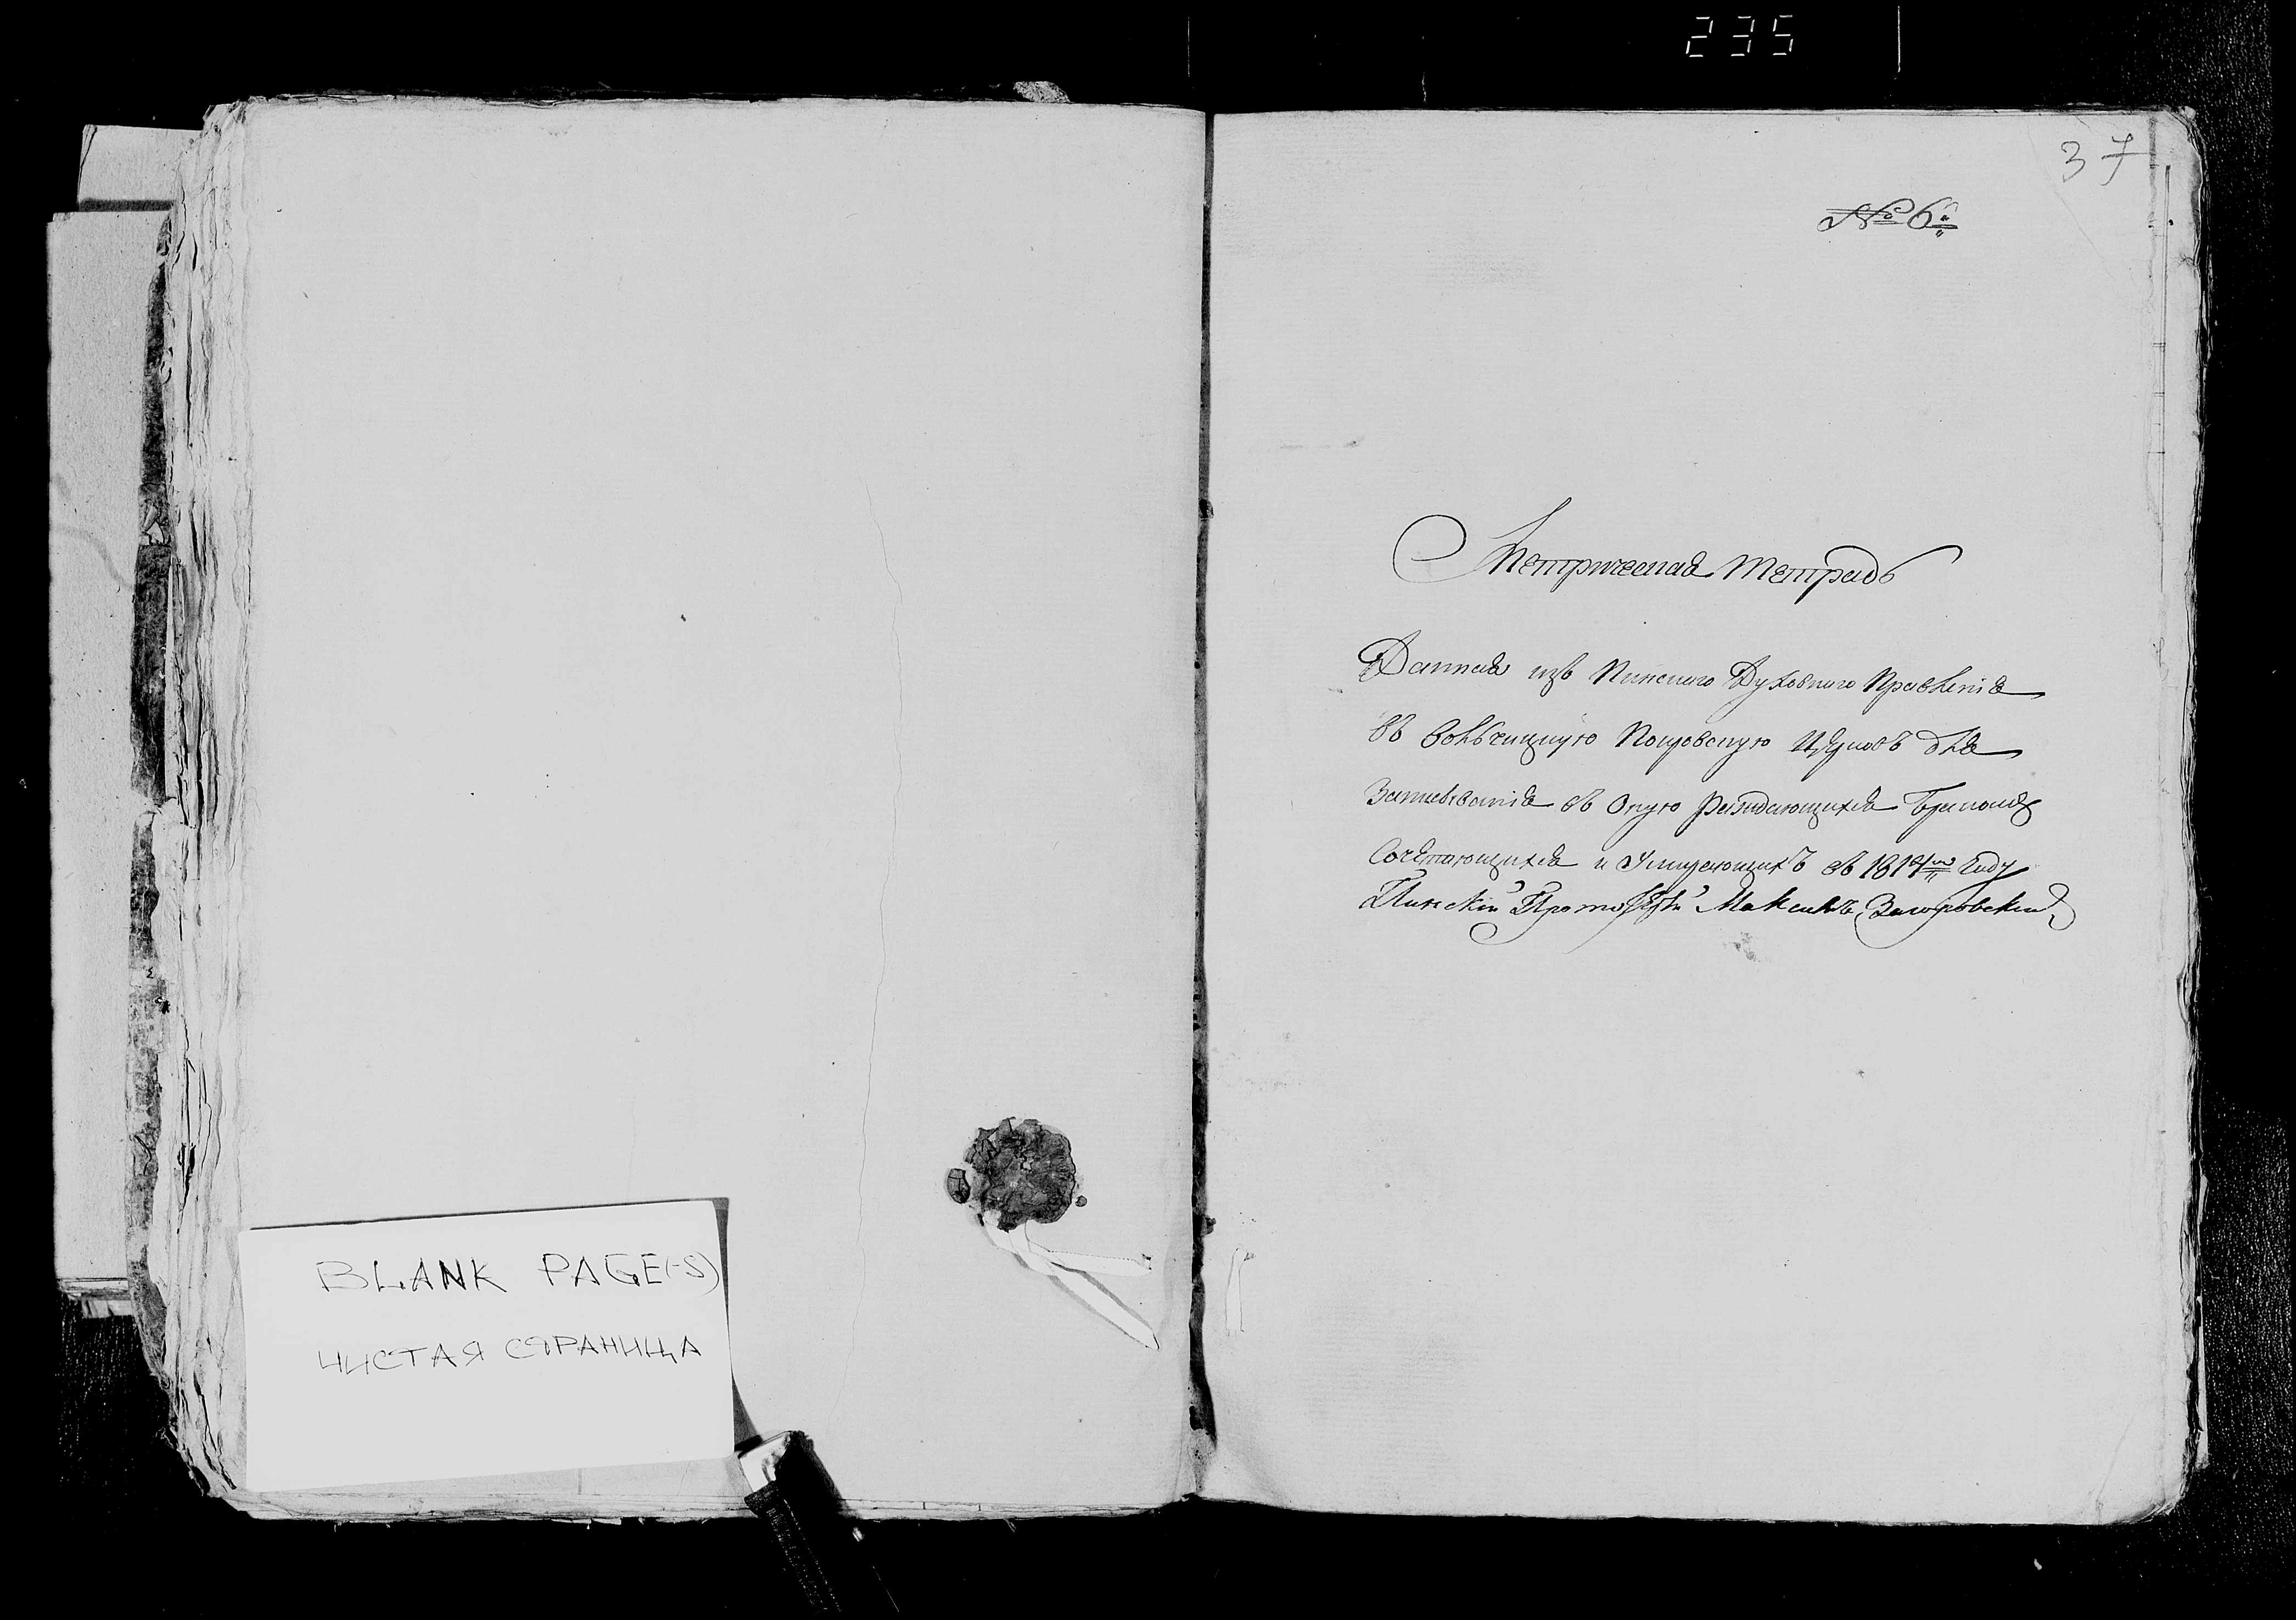 235
37
№ 6й
Метрическая тетрадь
Данная изъ Пинскаго Духовнаго Правленія
въ Покровскую Церковь для
Записыванія въ оную Раждающихся Бракомъ
Сочетающихся и Умирающихъ въ 1814м году
Пинскій Протоіерей Максимъ
BLANK PAGE(-S)
ЧИСТАЯ СТРАНИЦА